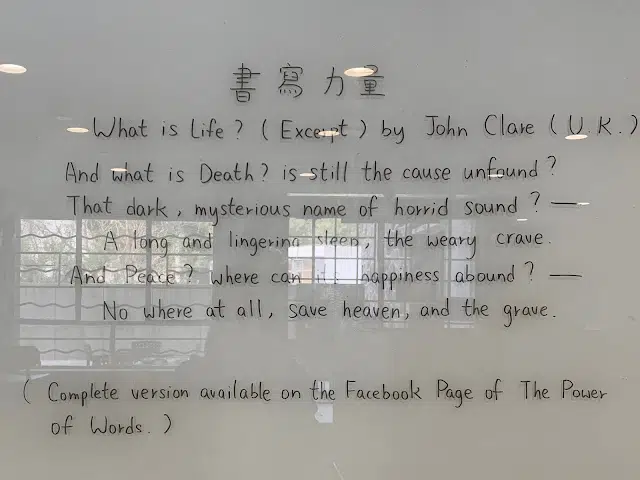 書寫力量
What is Life? (Excerpt) by John Clare (U.K.)
And what is Death? is still the cause unfound?
That dark, mysterious name of horrid sound? —
A long and lingering sleep, the weary crave.
And Peace? where can its happiness abound? —
No where at all, save heaven, and the grave.
( Complete version available on the Facebook Page of The Power
of Words. )